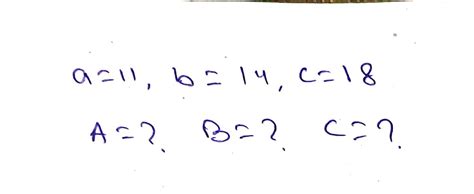 a=11, b=14, c=18
A=?. B=?. C=?.